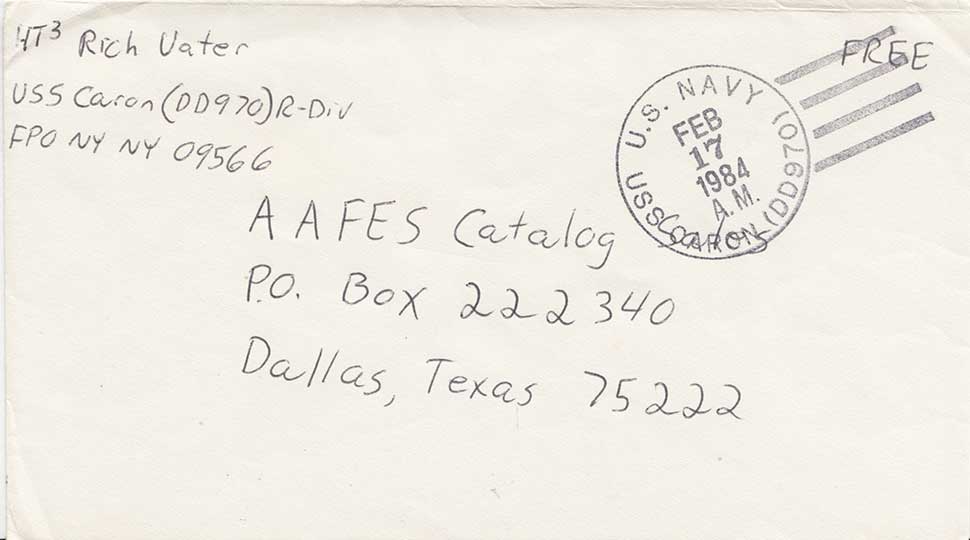 HT3 Rich Vater
USS Caron (DD970) R-Div
FPO NY NY 09566
FREE
U.S. NAVY (DD970)
FEB
17
1984
A.M.
USS CARON
AAFES Catalog Sales
P.O. Box 222340
Dallas, Texas 75222